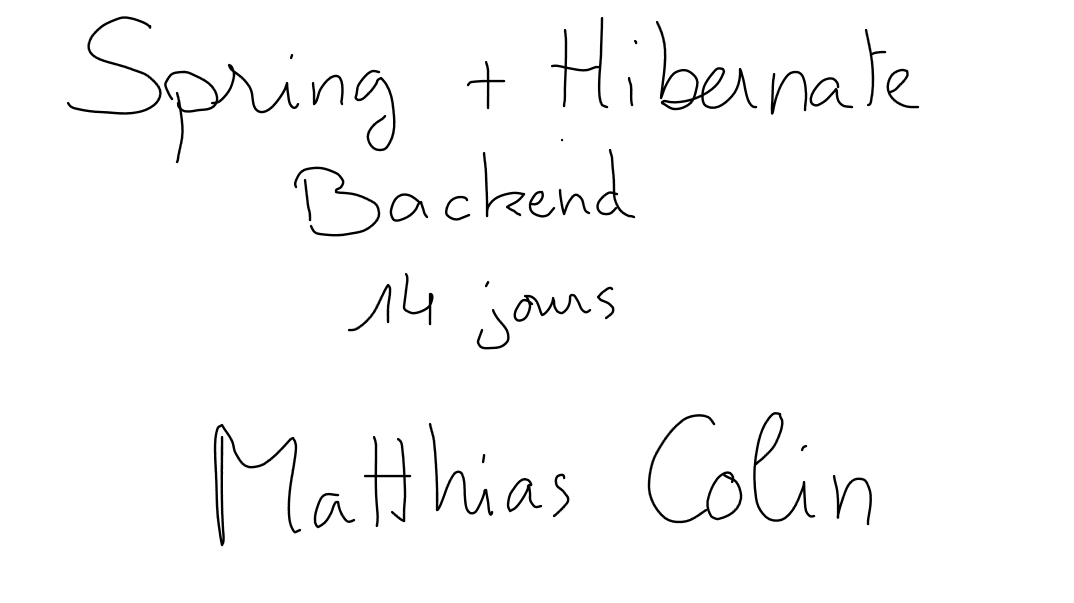 Spring + Hibernate
Backend
14 jours
Matthias Colin